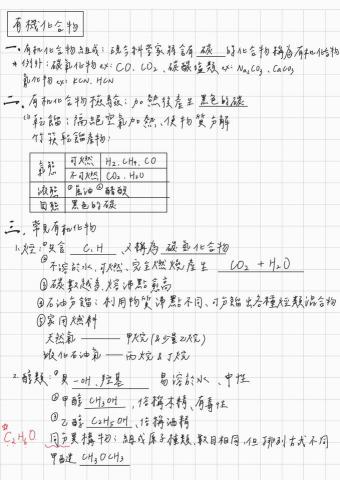 有機化合物
一、有機化合物組成:現今科學家將含有 碳 的化合物稱為有機化合物
* 例外:碳氧化物 ex: CO、CO₂、碳酸鹽類 ex: Na₂CO₃、CaCO₃
氰化物 ex: KCN、HCN
二、有機化合物檢驗:加熱後產生 黑色的碳
(1) 乾餾:隔絕空氣加熱,使物質分解
竹筷乾餾產物:
氣態 可燃 H₂、CH₄、CO
不可燃 CO₂、H₂O
液態 ①焦油 ②醋酸
固態 黑色的碳
三、常見有機化合物
1. 烴:①只含 C、H ,又稱為 碳氫化合物
②不溶於水、可燃、完全燃燒產生 CO₂ + H₂O
③碳數越多,熔沸點越高
④石油分餾:利用物質沸點不同、可分餾出各種烴類混合物
⑤家用燃料
天然氣 —— 甲烷(&少量乙烷)
液化石油氣 —— 丙烷&丁烷
2. 醇類:①具 -OH、羥基 易溶於水、中性
②甲醇 CH₃OH ,俗稱木精、有毒性
③乙醇 C₂H₅OH、俗稱酒精
C₂H₆O 同分異構物:組成原子種類、數目相同,但排列方式不同
甲醚 CH₃OCH₃